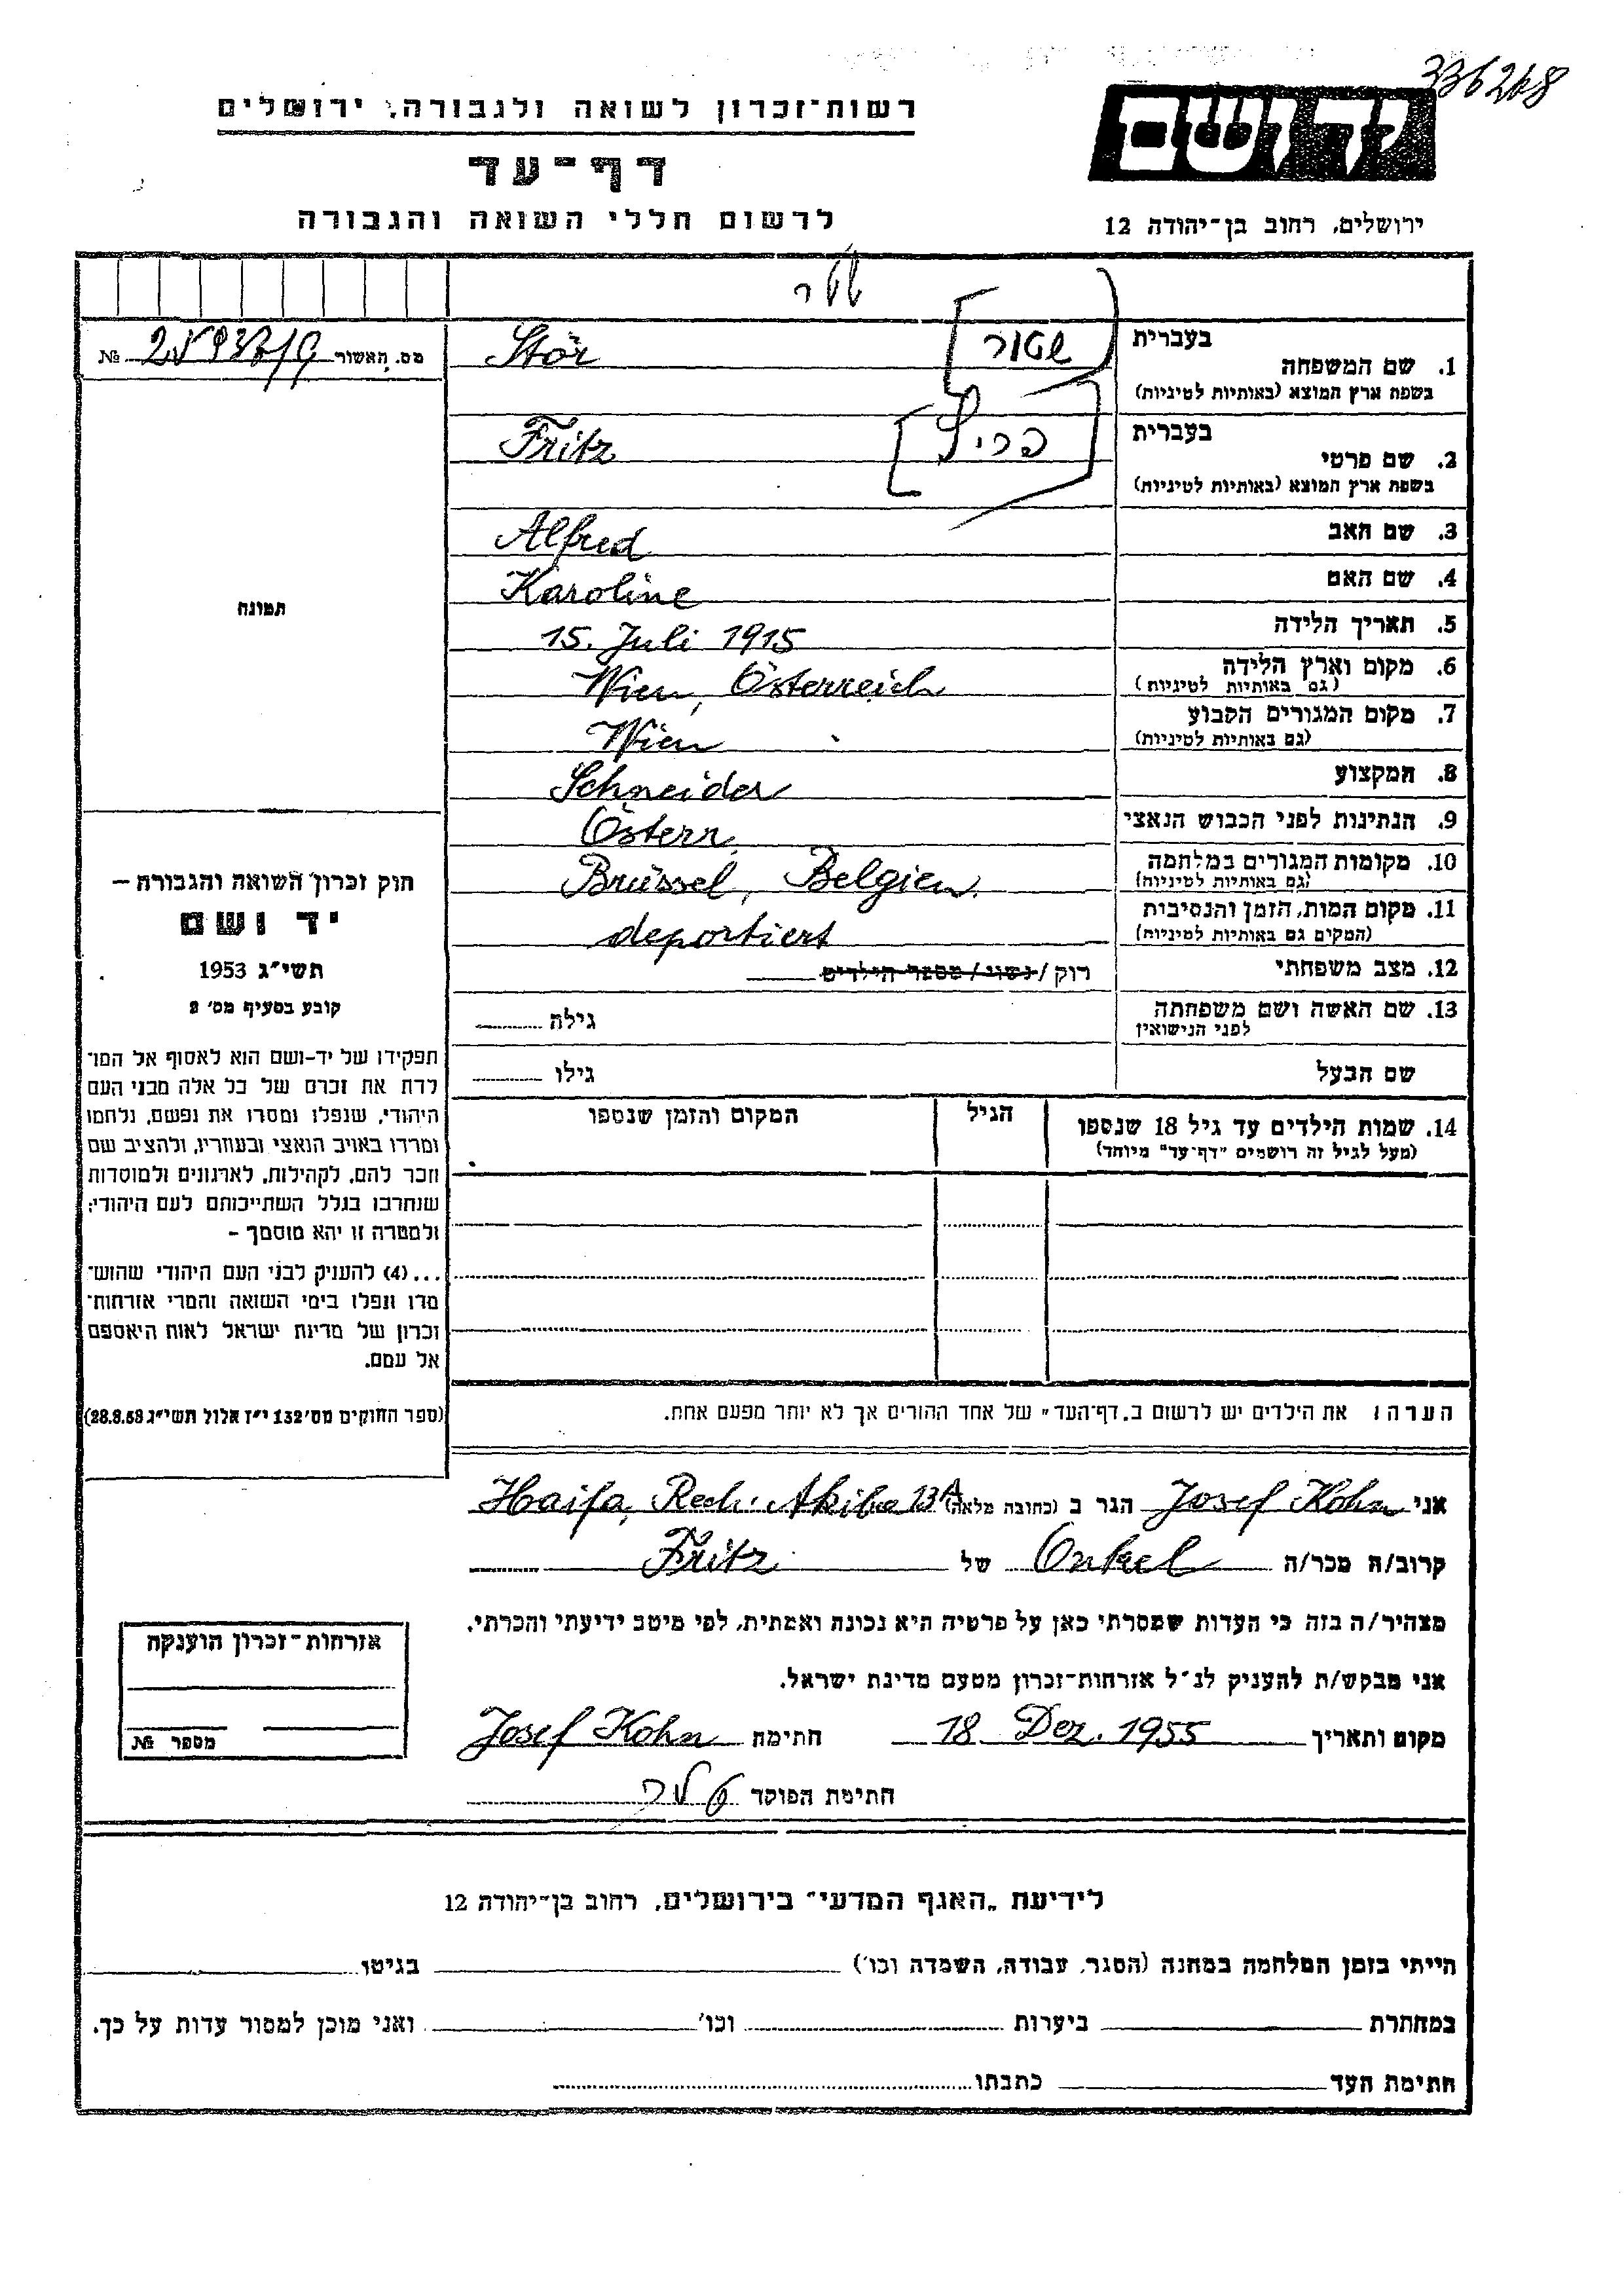 336268
רשות־זכרון לשואה ולגבורה, ירושלים
יד ושם
דף־עד
לרשום חללי השואה והגבורה
ירושלים, רחוב בן־יהודה 12
שטר
מס. האשור №
בעברית
שטור
Stör
1. שם המשפחה
בשפת ארץ המוצא (באותיות לטיניות)
בעברית
פריץ
Fritz
2. שם פרטי
בשפת ארץ המוצא (באותיות לטיניות)
3. שם האב Alfred
4. שם האם Karoline
5. תאריך הלידה 15. Juli 1915
6. מקום וארץ הלידה Wien, Österreich
(גם באותיות לטיניות)
7. מקום המגורים הקבוע Wien
(גם באותיות לטיניות)
8. המקצוע Schneider
9. הנתינות לפני הכבוש הנאצי Österr.
10. מקומות המגורים במלחמה Brüssel, Belgien.
(גם באותיות לטיניות)
11. מקום המות, הזמן והנסיבות deportiert
(המקום גם באותיות לטיניות)
12. מצב משפחתי רוק / נשוי / מספר הילדים
13. שם האשה ושם משפחתה גילה
לפני הנישואין
שם הבעל גילו
14. שמות הילדים עד גיל 18 שנספו הגיל המקום והזמן שנספו
(מעל לגיל זה רושמים "דף־עד" מיוחד)
הערה: את הילדים יש לרשום ב„דף־העד" של אחד ההורים אך לא יותר מפעם אחת.
תמונה
חוק זכרון השואה והגבורה –
יד ושם
תשי"ג 1953
קובע בסעיף מס' 2
תפקידו של יד-ושם הוא לאסוף אל המו־
לדת את זכרם של כל אלה מבני העם
היהודי, שנפלו ומסרו את נפשם, נלחמו
ומרדו באויב הנאצי ובעוזריו, ולהציב שם
וזכר להם, לקהילות, לארגונים ולמוסדות
שנחרבו בגלל השתייכותם לעם היהודי;
ולמטרה זו יהא מוסמך –
...(4) להעניק לבני העם היהודי שהוש־
מדו ונפלו בימי השואה והמרי אזרחות־
זכרון של מדינת ישראל לאות היאספם
אל עמם.
(ספר החוקים מס' 132 י"ז אלול תשי"ג 28.8.53)
אני Josef Kohn הגר ב (כתובת מלאה) Haifa, Rech. Akiba 13A
קרוב/ה מכר/ה Onkel של Fritz
מצהיר/ה בזה כי העדות שמסרתי כאן על פרטיה היא נכונה ואמתית, לפי מיטב ידיעתי והכרתי.
אני מבקש/ת להעניק לנ"ל אזרחות־זכרון מטעם מדינת ישראל.
מקום ותאריך 18. Dez. 1955 חתימה Josef Kohn
חתימת הפוקד
אזרחות־זכרון הוענקה
מספר №
לידיעת „האגף המדעי" בירושלים, רחוב בן־יהודה 12
הייתי בזמן המלחמה במחנה (הסגר, עבודה, השמדה וכו') בגיטו
במחתרת ביערות וכו' ואני מוכן למסור עדות על כך.
חתימת העד כתבתו